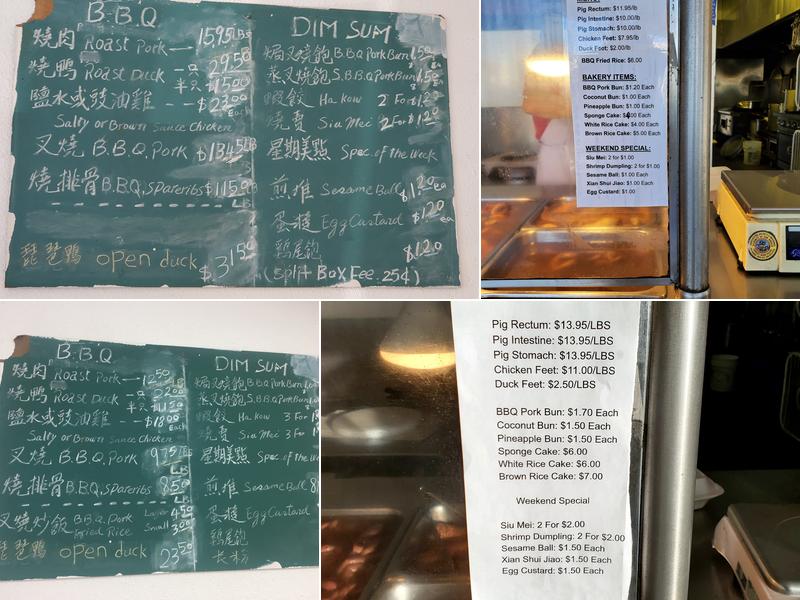 B.B.Q
燒肉 Roast Pork — 15.95 LBS
燒鴨 Roast Duck 一只 2950
半只 $1500
鹽水或豉油雞 -- $23.00 Each
Salty or Brown Sauce Chicken
叉燒 B.B.Q. Pork $1345 LB
燒排骨 B.B.Q. Spareribs $1150 LB
琵琶鴨 open duck $3150
DIM SUM
焗叉燒飽 B.B.Q Pork Bun
蒸叉燒飽 S.B.B.Q Pork Bun
蝦餃 Ha kow 2 For
燒賣 Siu Mei 2 For $120
星期美點 Spec. of the Week
煎堆 Sesame Ball $120 ea
蛋撻 Egg Custard $120 ea
鷄尾飽 $120
(Split Box Fee. 25¢)
Pig Rectum: $11.95/lb
Pig Intestine: $10.00/lb
Pig Stomach: $10.00/lb
Chicken Feet: $7.95/lb
Duck Foot: $2.00/lb
BBQ Fried Rice: $6.00
BAKERY ITEMS:
BBQ Pork Bun: $1.20 Each
Coconut Bun: $1.00 Each
Pineapple Bun: $1.00 Each
Sponge Cake: Each
White Rice Cake: $4.00 Each
Brown Rice Cake: $5.00 Each
WEEKEND SPECIAL:
Siu Mei: 2 for $1.00
Shrimp Dumpling: 2 for $1.00
Sesame Ball: $1.00 Each
Xian Shui Jiao: $1.00 Each
Egg Custard: $1.00
B.B.Q
燒肉 Roast Pork — 1250
燒鴨 Roast Duck 一只 2200
半只 $1150
鹽水或豉油雞 -- $18.00 Each
Salty or Brown Sauce Chicken
叉燒 B.B.Q. Pork 975 LB
燒排骨 B.B.Q. Spareribs 850 LB
叉燒炒飯 B.B.Q. Pork Fried Rice Large 450
Small 300
琵琶鴨 open duck 2350
DIM SUM
焗叉燒飽 B.B.Q Pork Bun
蒸叉燒飽 S.B.B.Q Pork Bun
蝦餃 Ha kow 3 For
燒賣 Siu Mei 3 For
星期美點 Spec. of the We
煎堆 Sesame Ball
蛋撻 Egg Custard
鷄尾飽
Pig Rectum: $13.95/LBS
Pig Intestine: $13.95/LBS
Pig Stomach: $13.95/LBS
Chicken Feet: $11.00/LBS
Duck Feet: $2.50/LBS
BBQ Pork Bun: $1.70 Each
Coconut Bun: $1.50 Each
Pineapple Bun: $1.50 Each
Sponge Cake: $6.00
White Rice Cake: $6.00
Brown Rice Cake: $7.00
Weekend Special
Siu Mei: 2 For $2.00
Shrimp Dumpling: 2 For $2.00
Sesame Ball: $1.50 Each
Xian Shui Jiao: $1.50 Each
Egg Custard: $1.50 Each